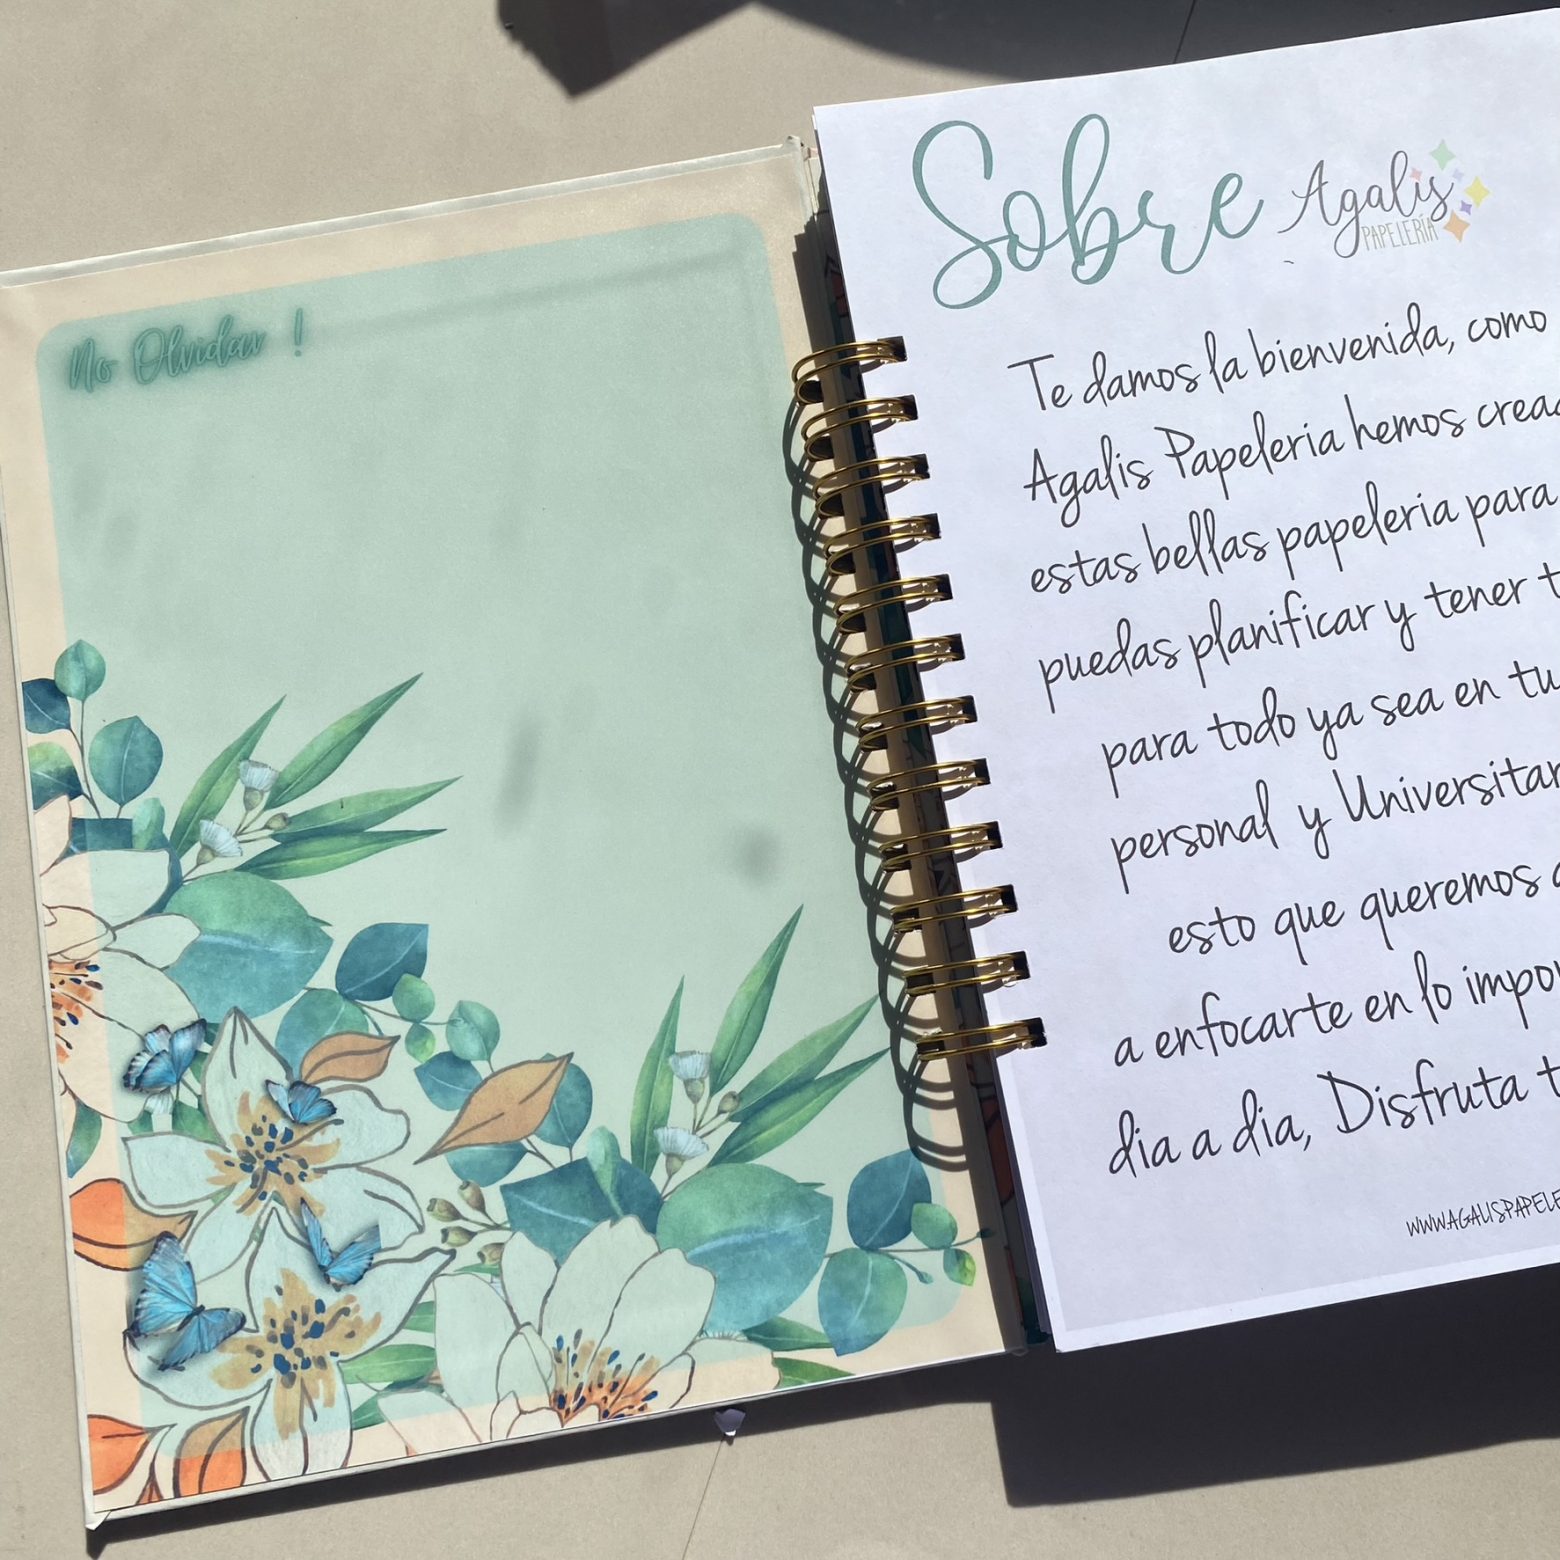 No Olvidar !
Sobre Agalis
PAPELERÍA
Te damos la bienvenida, como
Agalis Papeleria hemos crea
estas bellas papeleria para
puedas planificar y tener t
para todo ya sea en tu
personal y Universitar
esto que queremos a
a enfocarte en lo impor
dia a dia, Disfruta t
WWW.AGALISPAPELE